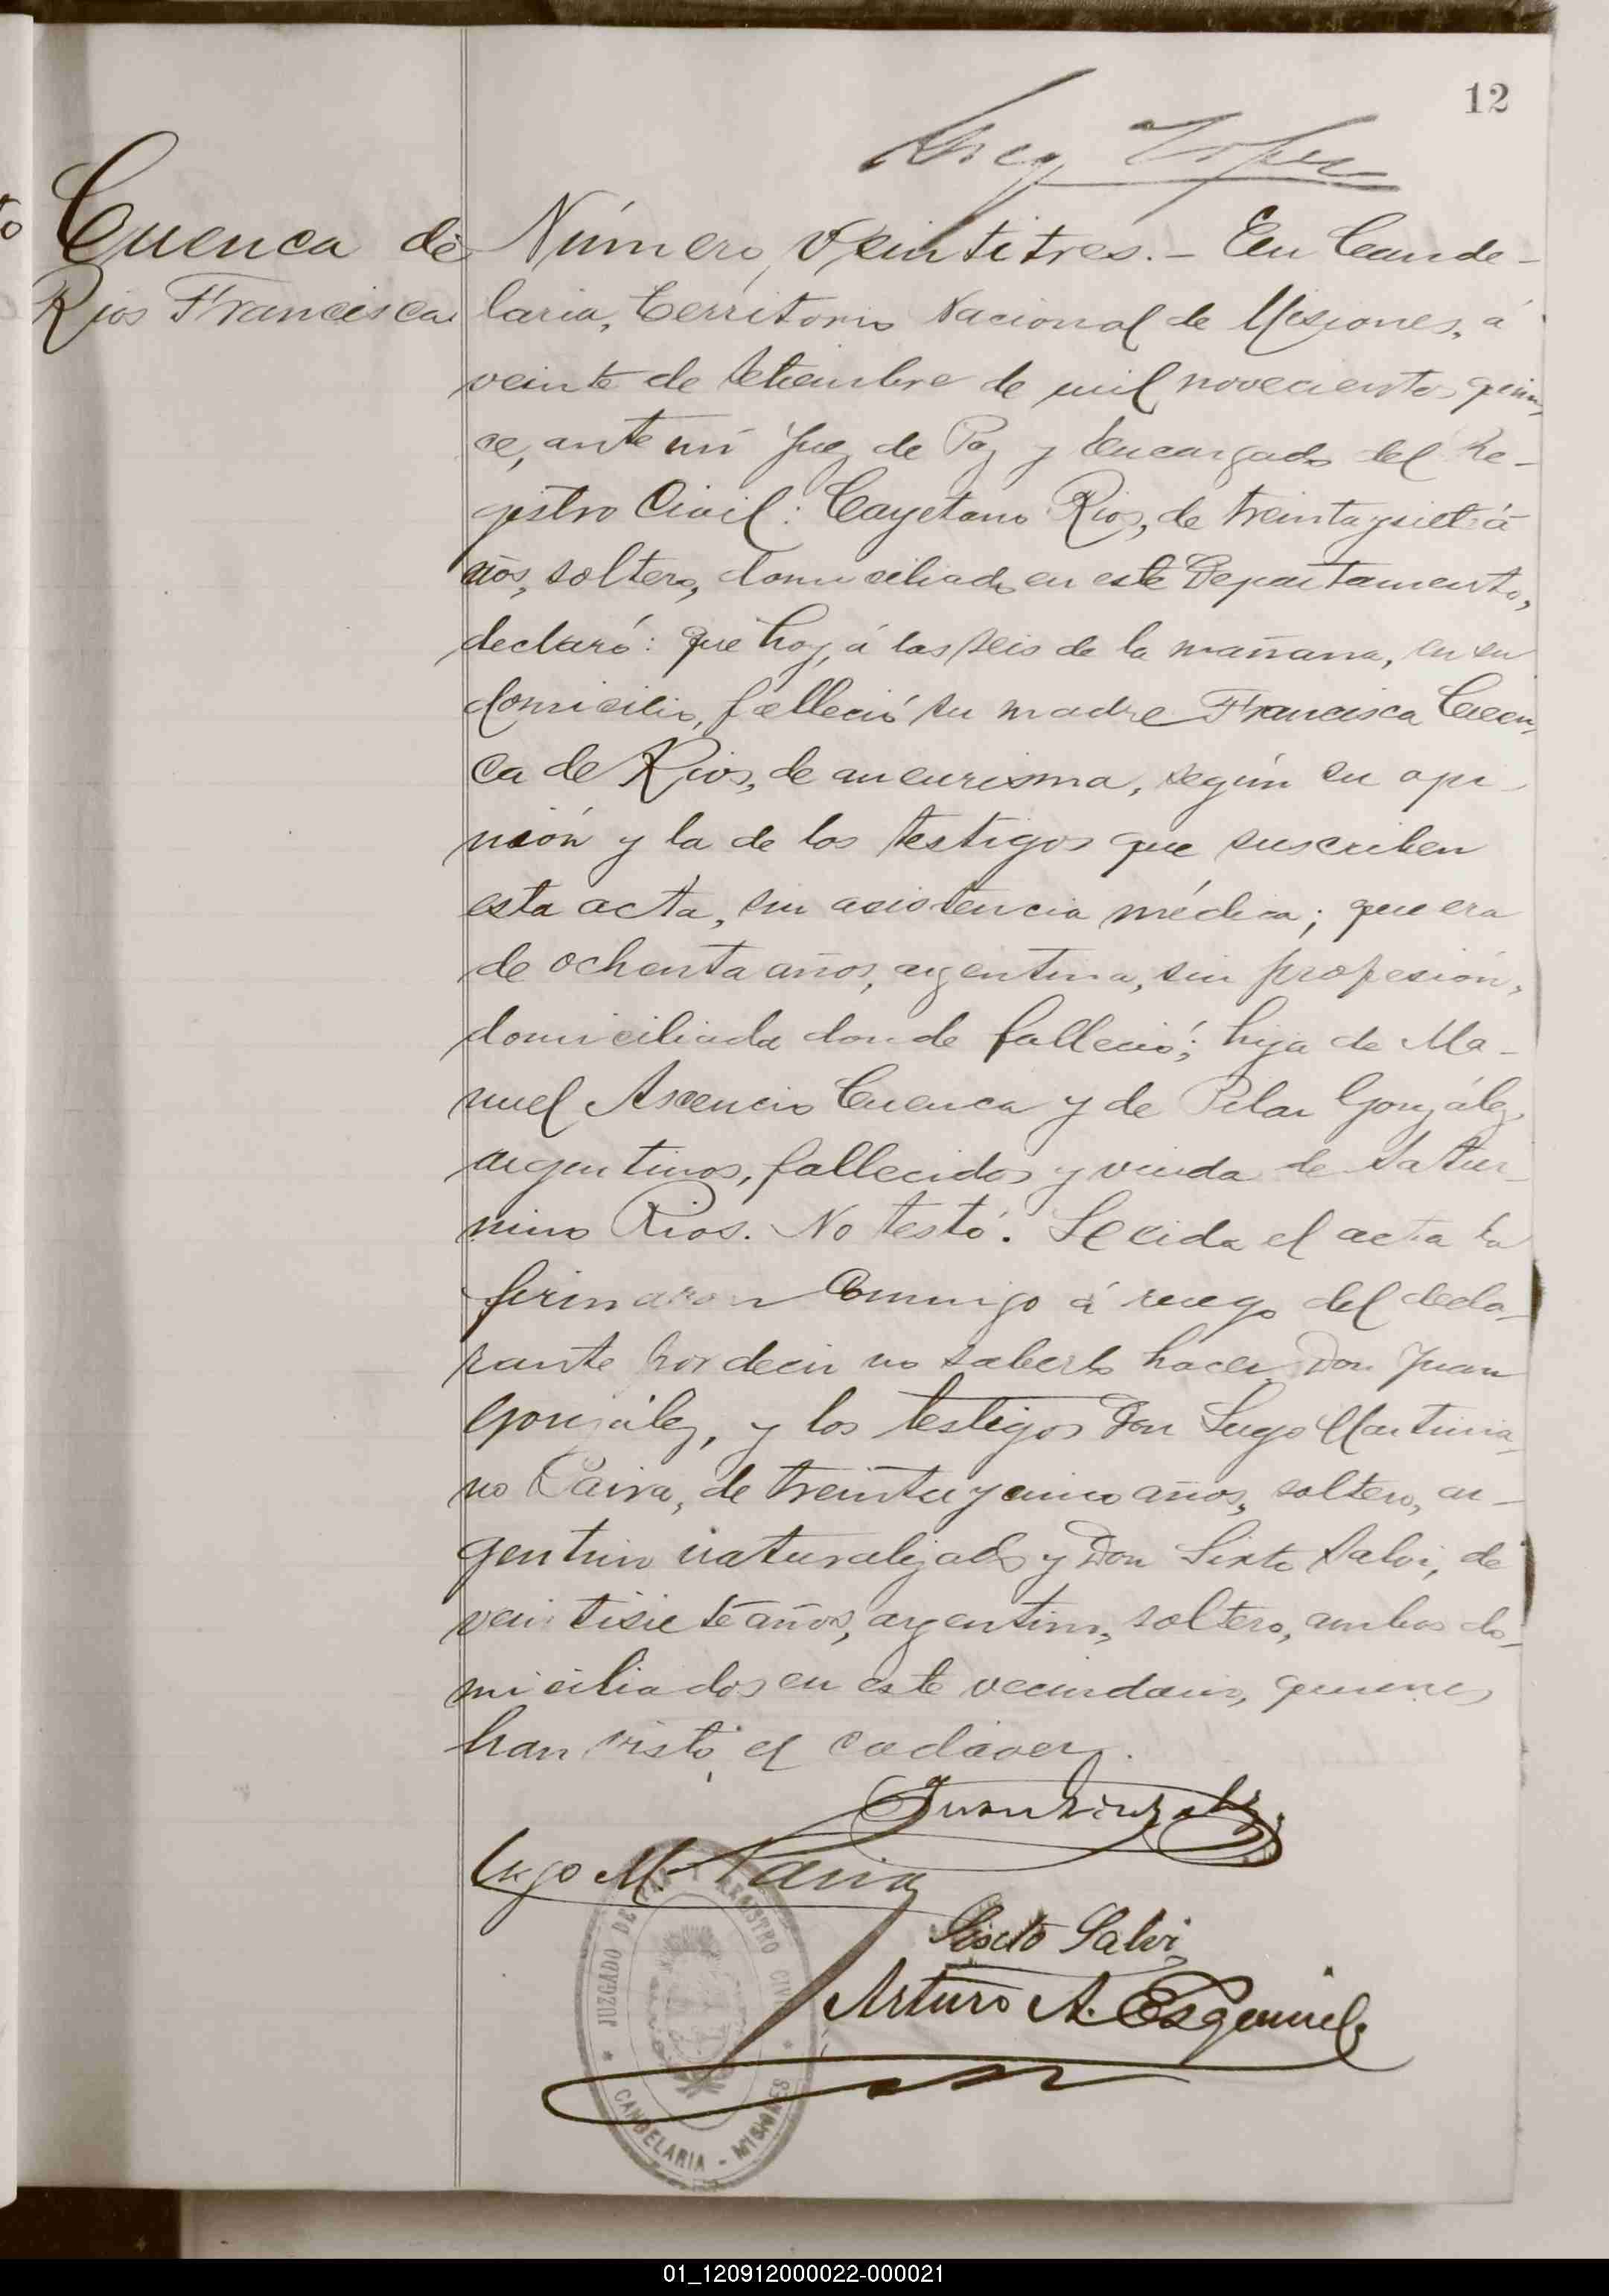 12
Cuenca de
Rios Francisca
Número veintitres. - En Cande-
laria, Territorio Nacional de Misiones, á
veinte de Setiembre de mil novecientos quin-
ce, ante mi Juez de Paz y Encargado del Re-
gistro Civil: Cayetano Rios, de treinta y siete a-
ños, soltero, domiciliado en este Departamento,
declaró: que hoy, á las seis de la mañana, en su
domicilio, falleció su madre Francisca Cuen-
ca de Rios, de aneurisma, según su opi-
nión y la de los testigos que suscriben
esta acta, sin asistencia médica; que era
de ochenta años, argentina, sin profesión,
domiciliada donde falleció; hija de Ma-
nuel Ascencio Cuenca y de Pilar González,
argentinos, fallecidos y viuda de Satur-
nino Rios. No testó. Leida el acta la
firmaron conmigo á ruego del decla-
rante por decir no saberlo hacer Don Juan
González, y los testigos Don Lugo Martinia-
no Paiva, de treinta y cinco años, soltero, ar-
gentino naturalizado y Don Sixto Salvi, de
veintisiete años, argentino, soltero, ambos do-
miciliados en este vecindario, quienes
han visto el cadáver.
Juan González
Lugo M. Paiva
Sixto Salvi
Arturo A. Esquivel
JUZGADO DE PAZ Y REGISTRO CIVIL
CANDELARIA - MISIONES
01_120912000022-000021